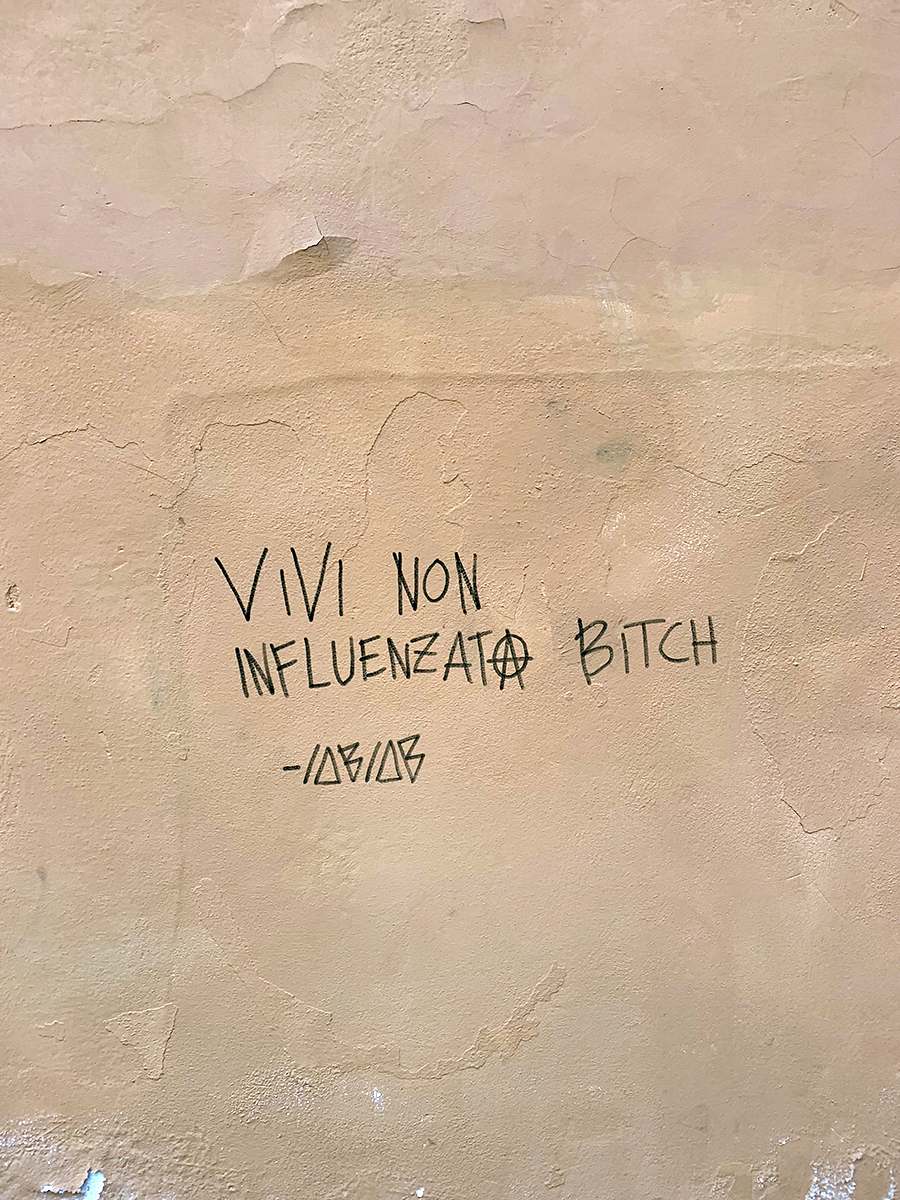 ViVi NON
INFLUENZATA BiTCH